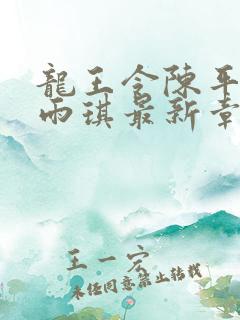 龍王令陳平
雨琪最新章
王一宏
未经同意禁止转载